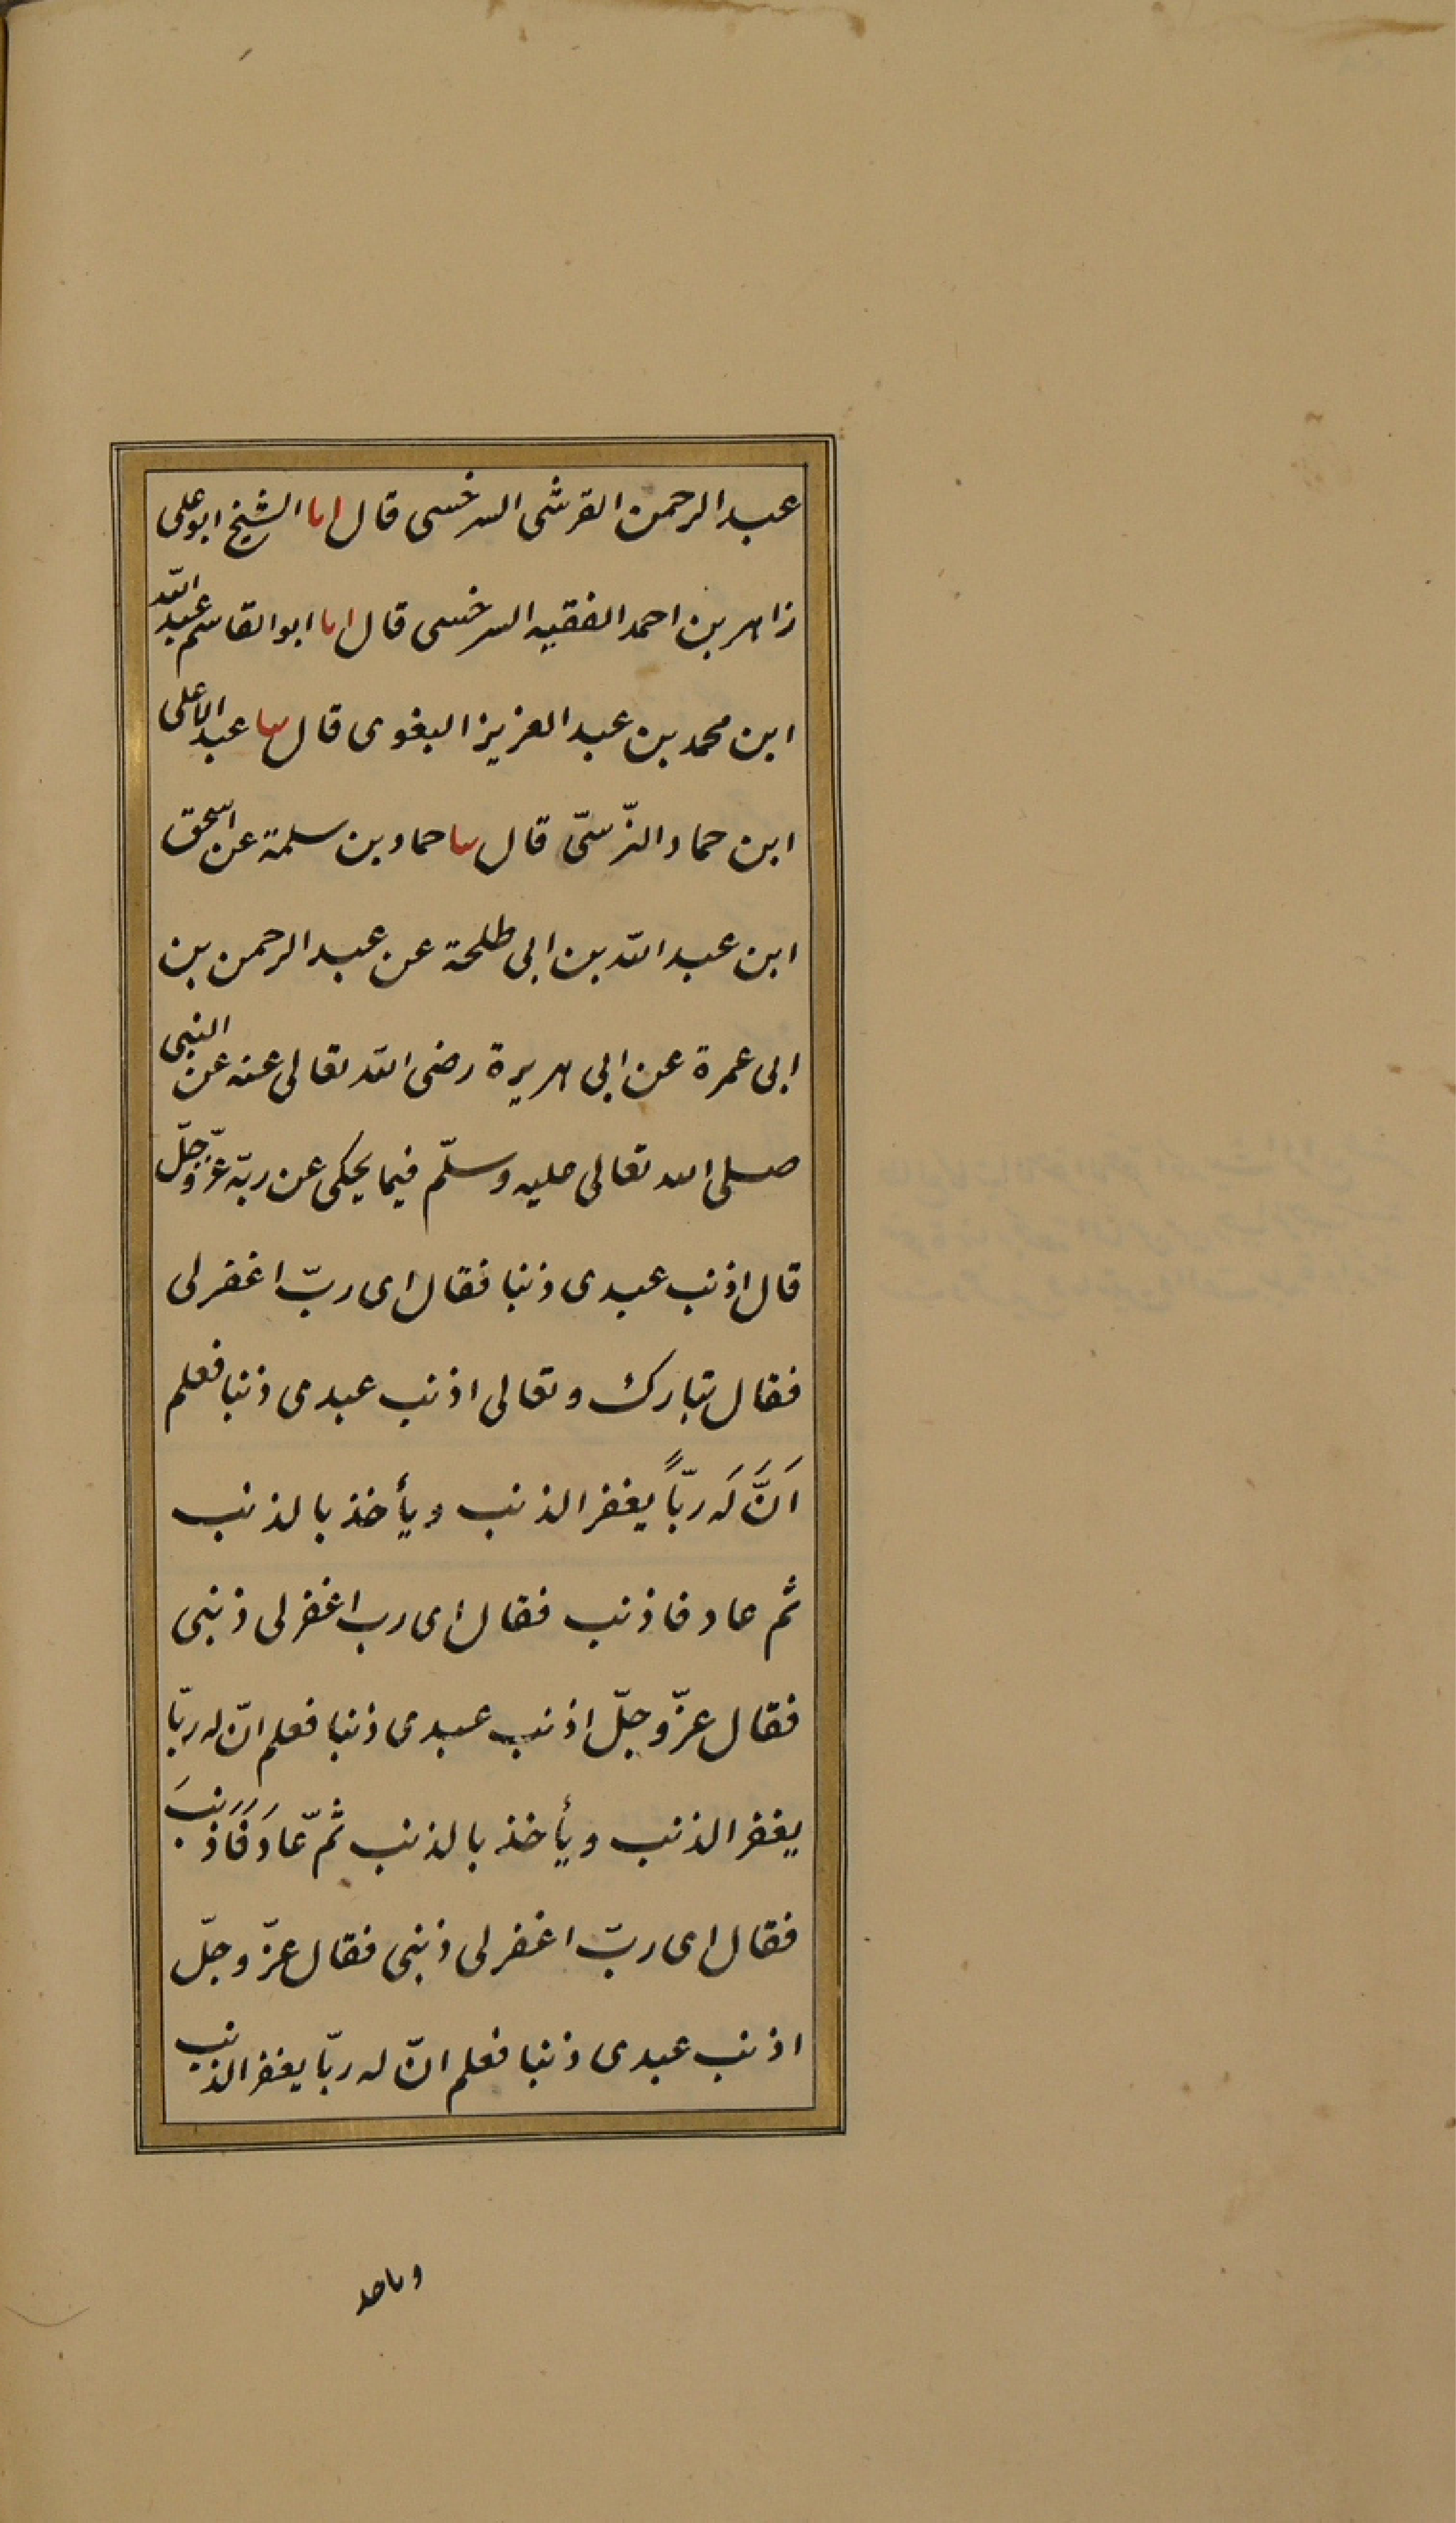 عبد الرحمن القرشى السرخسى قال انا الشيخ ابو على
زاهر بن احمد الفقيه السرخسى قال انا ابو القاسم عبد الله
ابن محمد بن عبد العزيز البغوى قال ثنا عبد الاعلى
ابن حماد النرسىّ قال ثنا حماد بن سلمة عن اسحق
ابن عبد الله بن ابى طلحة عن عبد الرحمن بن
ابى عمرة عن ابى هريرة رضى الله تعالى عنه عن النبى
صلى الله تعالى عليه وسلّم فيما يحكى عن ربّه عزّ وجلّ
قال اذنب عبدى ذنبا فقال اى ربّ اغفر لى
فقال تبارك وتعالى اذنب عبدى ذنبا فعلم
اَنَّ لَه ربّاً يغفر الذنب ويأخذ بالذنب
ثم عاد فاذنب فقال اى رب اغفر لى ذنبى
فقال عزّ وجلّ اذنب عبدى ذنبا فعلم انّ له ربّا
يغفر الذنب ويأخذ بالذنب ثمّ عَادَ فَاَذنبَ
فقال اى ربّ اغفر لى ذنبى فقال عزّ وجلّ
اذنب عبدى ذنبا فعلم انّ له ربّا يغفر الذنب
وياخذ